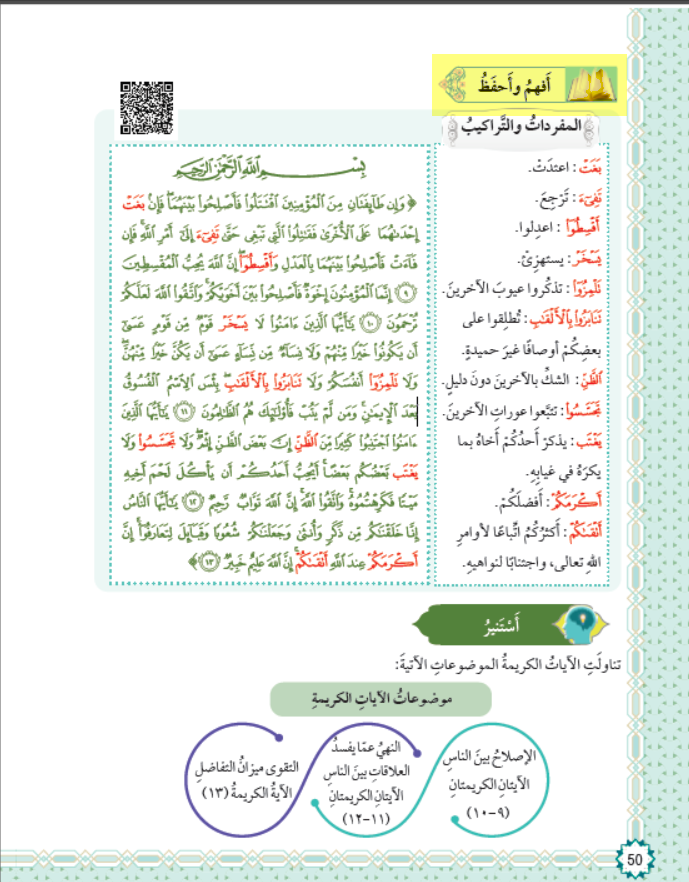 أَفهمُ وأَحفَظُ
المفرداتُ والتَّراكيبُ
بَغَتْ: اعتدَتْ.
تَفِيٓءَ: تَرْجِعَ.
أَقْسِطُوٓاْ: اعدِلوا.
يَسْخَرْ: يستهزِئْ.
تَلْمِزُوٓاْ: تذكُروا عيوبَ الآخرينَ.
تَنَابَزُواْ بِٱلْأَلْقَٰبِ: تُطلقوا على
بعضِكُمْ أوصافًا غيرَ حميدةٍ.
ٱلظَّنِّ: الشكِّ بالآخرينَ دونَ دليلٍ.
تَجَسَّسُواْ: تتبَّعوا عوراتِ الآخرينَ.
يَغْتَب: يذكرْ أَحدُكُمْ أَخاهُ بما
يكرَهُ في غيابِهِ.
أَكْرَمَكُمْ: أَفضلَكُمْ.
أَتْقَىٰكُمْ: أكثرُكُمُ اتِّباعًا لأوامرِ
اللهِ تعالى، واجتنابًا لنواهيهِ.
بِسْمِ ٱللَّهِ ٱلرَّحْمَٰنِ ٱلرَّحِيمِ
﴿ وَإِن طَآئِفَتَانِ مِنَ ٱلْمُؤْمِنِينَ ٱقْتَتَلُواْ فَأَصْلِحُواْ بَيْنَهُمَاۖ فَإِنۢ بَغَتْ
إِحْدَىٰهُمَا عَلَى ٱلْأُخْرَىٰ فَقَٰتِلُواْ ٱلَّتِي تَبْغِي حَتَّىٰ تَفِيٓءَ إِلَىٰٓ أَمْرِ ٱللَّهِۚ فَإِن
فَآءَتْ فَأَصْلِحُواْ بَيْنَهُمَا بِٱلْعَدْلِ وَأَقْسِطُوٓاْۖ إِنَّ ٱللَّهَ يُحِبُّ ٱلْمُقْسِطِينَ
٩ إِنَّمَا ٱلْمُؤْمِنُونَ إِخْوَةٌ فَأَصْلِحُواْ بَيْنَ أَخَوَيْكُمْۚ وَٱتَّقُواْ ٱللَّهَ لَعَلَّكُمْ
تُرْحَمُونَ ١٠ يَٰٓأَيُّهَا ٱلَّذِينَ ءَامَنُواْ لَا يَسْخَرْ قَوْمٌ مِّن قَوْمٍ عَسَىٰٓ
أَن يَكُونُواْ خَيْرًا مِّنْهُمْ وَلَا نِسَآءٌ مِّن نِّسَآءٍ عَسَىٰٓ أَن يَكُنَّ خَيْرًا مِّنْهُنَّۖ
وَلَا تَلْمِزُوٓاْ أَنفُسَكُمْ وَلَا تَنَابَزُواْ بِٱلْأَلْقَٰبِۖ بِئْسَ ٱلِٱسْمُ ٱلْفُسُوقُ
بَعْدَ ٱلْإِيمَٰنِۚ وَمَن لَّمْ يَتُبْ فَأُوْلَٰٓئِكَ هُمُ ٱلظَّٰلِمُونَ ١١ يَٰٓأَيُّهَا ٱلَّذِينَ
ءَامَنُواْ ٱجْتَنِبُواْ كَثِيرًا مِّنَ ٱلظَّنِّ إِنَّ بَعْضَ ٱلظَّنِّ إِثْمٌۖ وَلَا تَجَسَّسُواْ وَلَا
يَغْتَب بَّعْضُكُم بَعْضًاۚ أَيُحِبُّ أَحَدُكُمْ أَن يَأْكُلَ لَحْمَ أَخِيهِ
مَيْتًا فَكَرِهْتُمُوهُۚ وَٱتَّقُواْ ٱللَّهَۚ إِنَّ ٱللَّهَ تَوَّابٌ رَّحِيمٌ ١٢ يَٰٓأَيُّهَا ٱلنَّاسُ
إِنَّا خَلَقْنَٰكُم مِّن ذَكَرٍ وَأُنثَىٰ وَجَعَلْنَٰكُمْ شُعُوبًا وَقَبَآئِلَ لِتَعَارَفُوٓاْۚ إِنَّ
أَكْرَمَكُمْ عِندَ ٱللَّهِ أَتْقَىٰكُمْۚ إِنَّ ٱللَّهَ عَلِيمٌ خَبِيرٌ ١٣ ﴾
أَسْتَنيرُ
تناولَتِ الآياتُ الكريمةُ الموضوعاتِ الآتيةَ:
موضوعاتُ الآياتِ الكريمةِ
الإصلاحُ بينَ الناسِ
الآيتانِ الكريمتانِ
(٩-١٠)
النهيُ عمّا يفسدُ
العلاقاتِ بينَ الناسِ
الآيتانِ الكريمتانِ
(١١-١٢)
التقوى ميزانُ التفاضلِ
الآيةُ الكريمةُ (١٣)
50